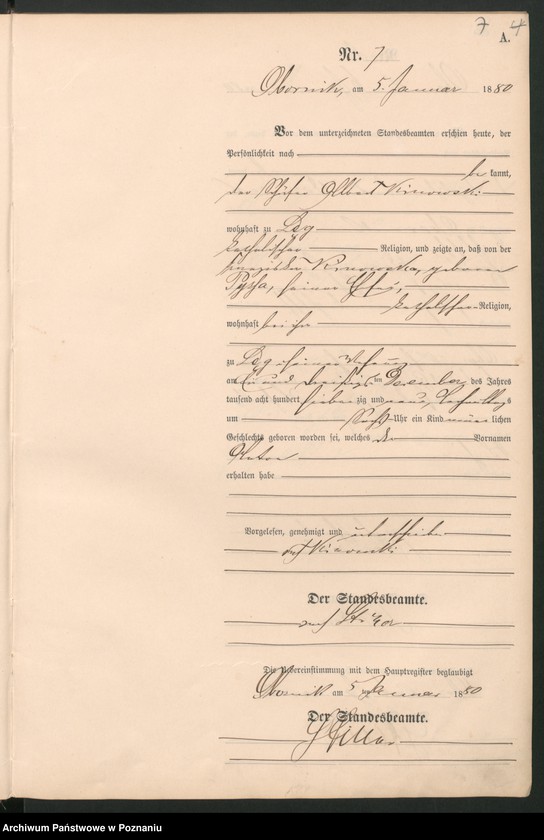 7 4
A.
Nr. 7
Obornik, am 5. Januar 1880
Vor dem unterzeichneten Standesbeamten erschien heute, der
Persönlichkeit nach
be kannt,
der Albert Kinowski
wohnhaft zu
katholischer Religion, und zeigte an, daß von der
geborene
seiner Ehefrau,
katholischer Religion,
wohnhaft bei ihm
zu in seiner Wohnung
am ein und dreißigsten Dezember des Jahres
tausend acht hundert sieben zig und neun, Nachmittags
um sechs Uhr ein Kind männ lichen
Geschlechts geboren worden sei, welches den Vornamen
Anton
erhalten habe
Vorgelesen, genehmigt und unterschrieben
Kinowski
Der Standesbeamte.
Die Uebereinstimmung mit dem Hauptregister beglaubigt
Obornik am 5 Januar 1880
Der Standesbeamte.
Archiwum Państwowe w Poznaniu